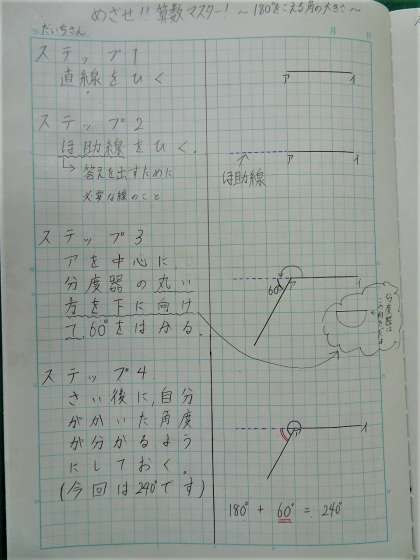 めざせ!!算数マスター!～180°をこえる角の大きさ～
たいちさん
月 日
ステップ1
直線をひく
ア イ
ステップ2
ほ助線をひく。
答えを出すために
必要な線のこと
ア イ
ほ助線
ステップ3
アを中心に
分度器の丸い
方を下に向け
て60°をはかる
60° ア イ
分度器は
この向きだよ
ステップ4
さい後に、自分
がかいた角度
が分かるよう
にしておく。
(今回は240°です)
ア イ
180°+60°=240°